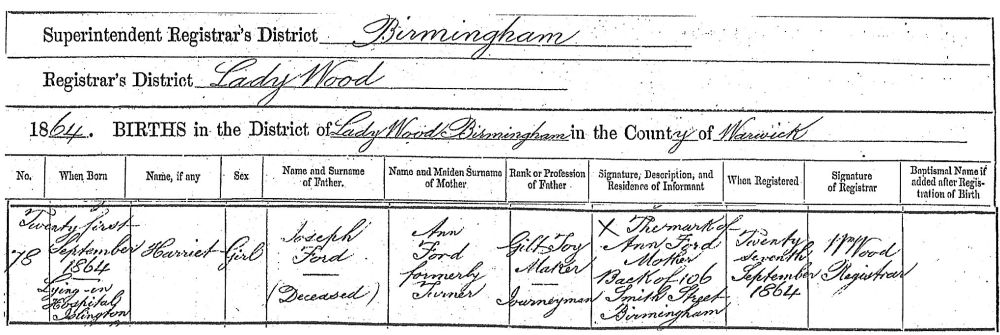 Superintendent Registrar's District Birmingham
Registrar's District Lady Wood
1864. BIRTHS in the District of Lady Wood Birmingham in the County of Warwick
No. When Born Name, if any Sex Name and Surname of Father. Name and Maiden Surname of Mother Rank or Profession of Father Signature, Description, and Residence of Informant When Registered Signature of Registrar Baptismal Name if added after Registration of Birth
78
Twenty first
September
1864
Lying-in
Hospital
Islington
Harriet
Girl
Joseph
Ford
(Deceased)
Ann
Ford
formerly
Turner
Gilt Toy
Maker
Journeyman
X The mark of
Ann Ford
Mother
Back of 106
Smith Street
Birmingham
Twenty
seventh
September
1864
Wm Wood
Registrar